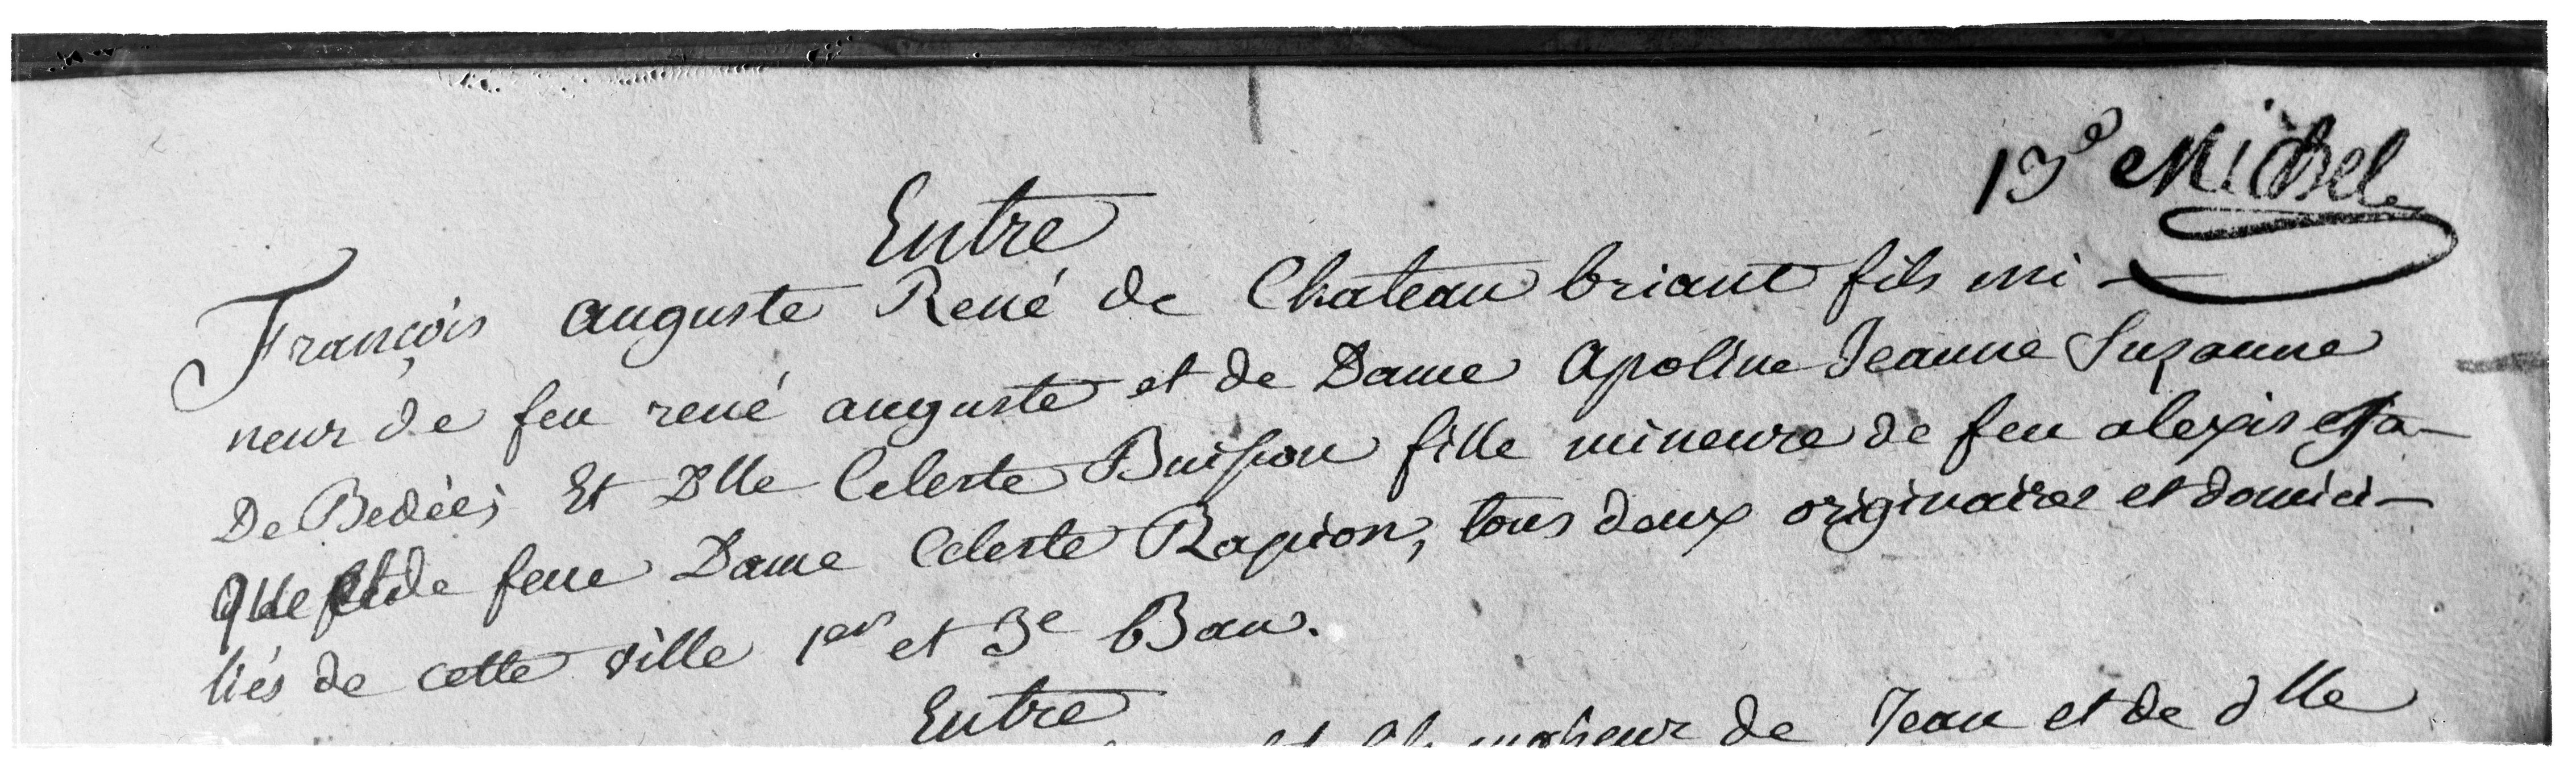 13e Michel
Entre
François auguste René de Chateau briant fils mi-
neur de feu rené auguste et de Dame Apoline Jeanne Suzanne
De Bedée; Et Dlle Celeste Buisson fille mineure de feu alexis Ja-
que et de feue Dame Celeste Rapion, tous deux originaires et domici-
liés de cette ville 1er et 3e Ban.
Entre
de Jean et de dlle